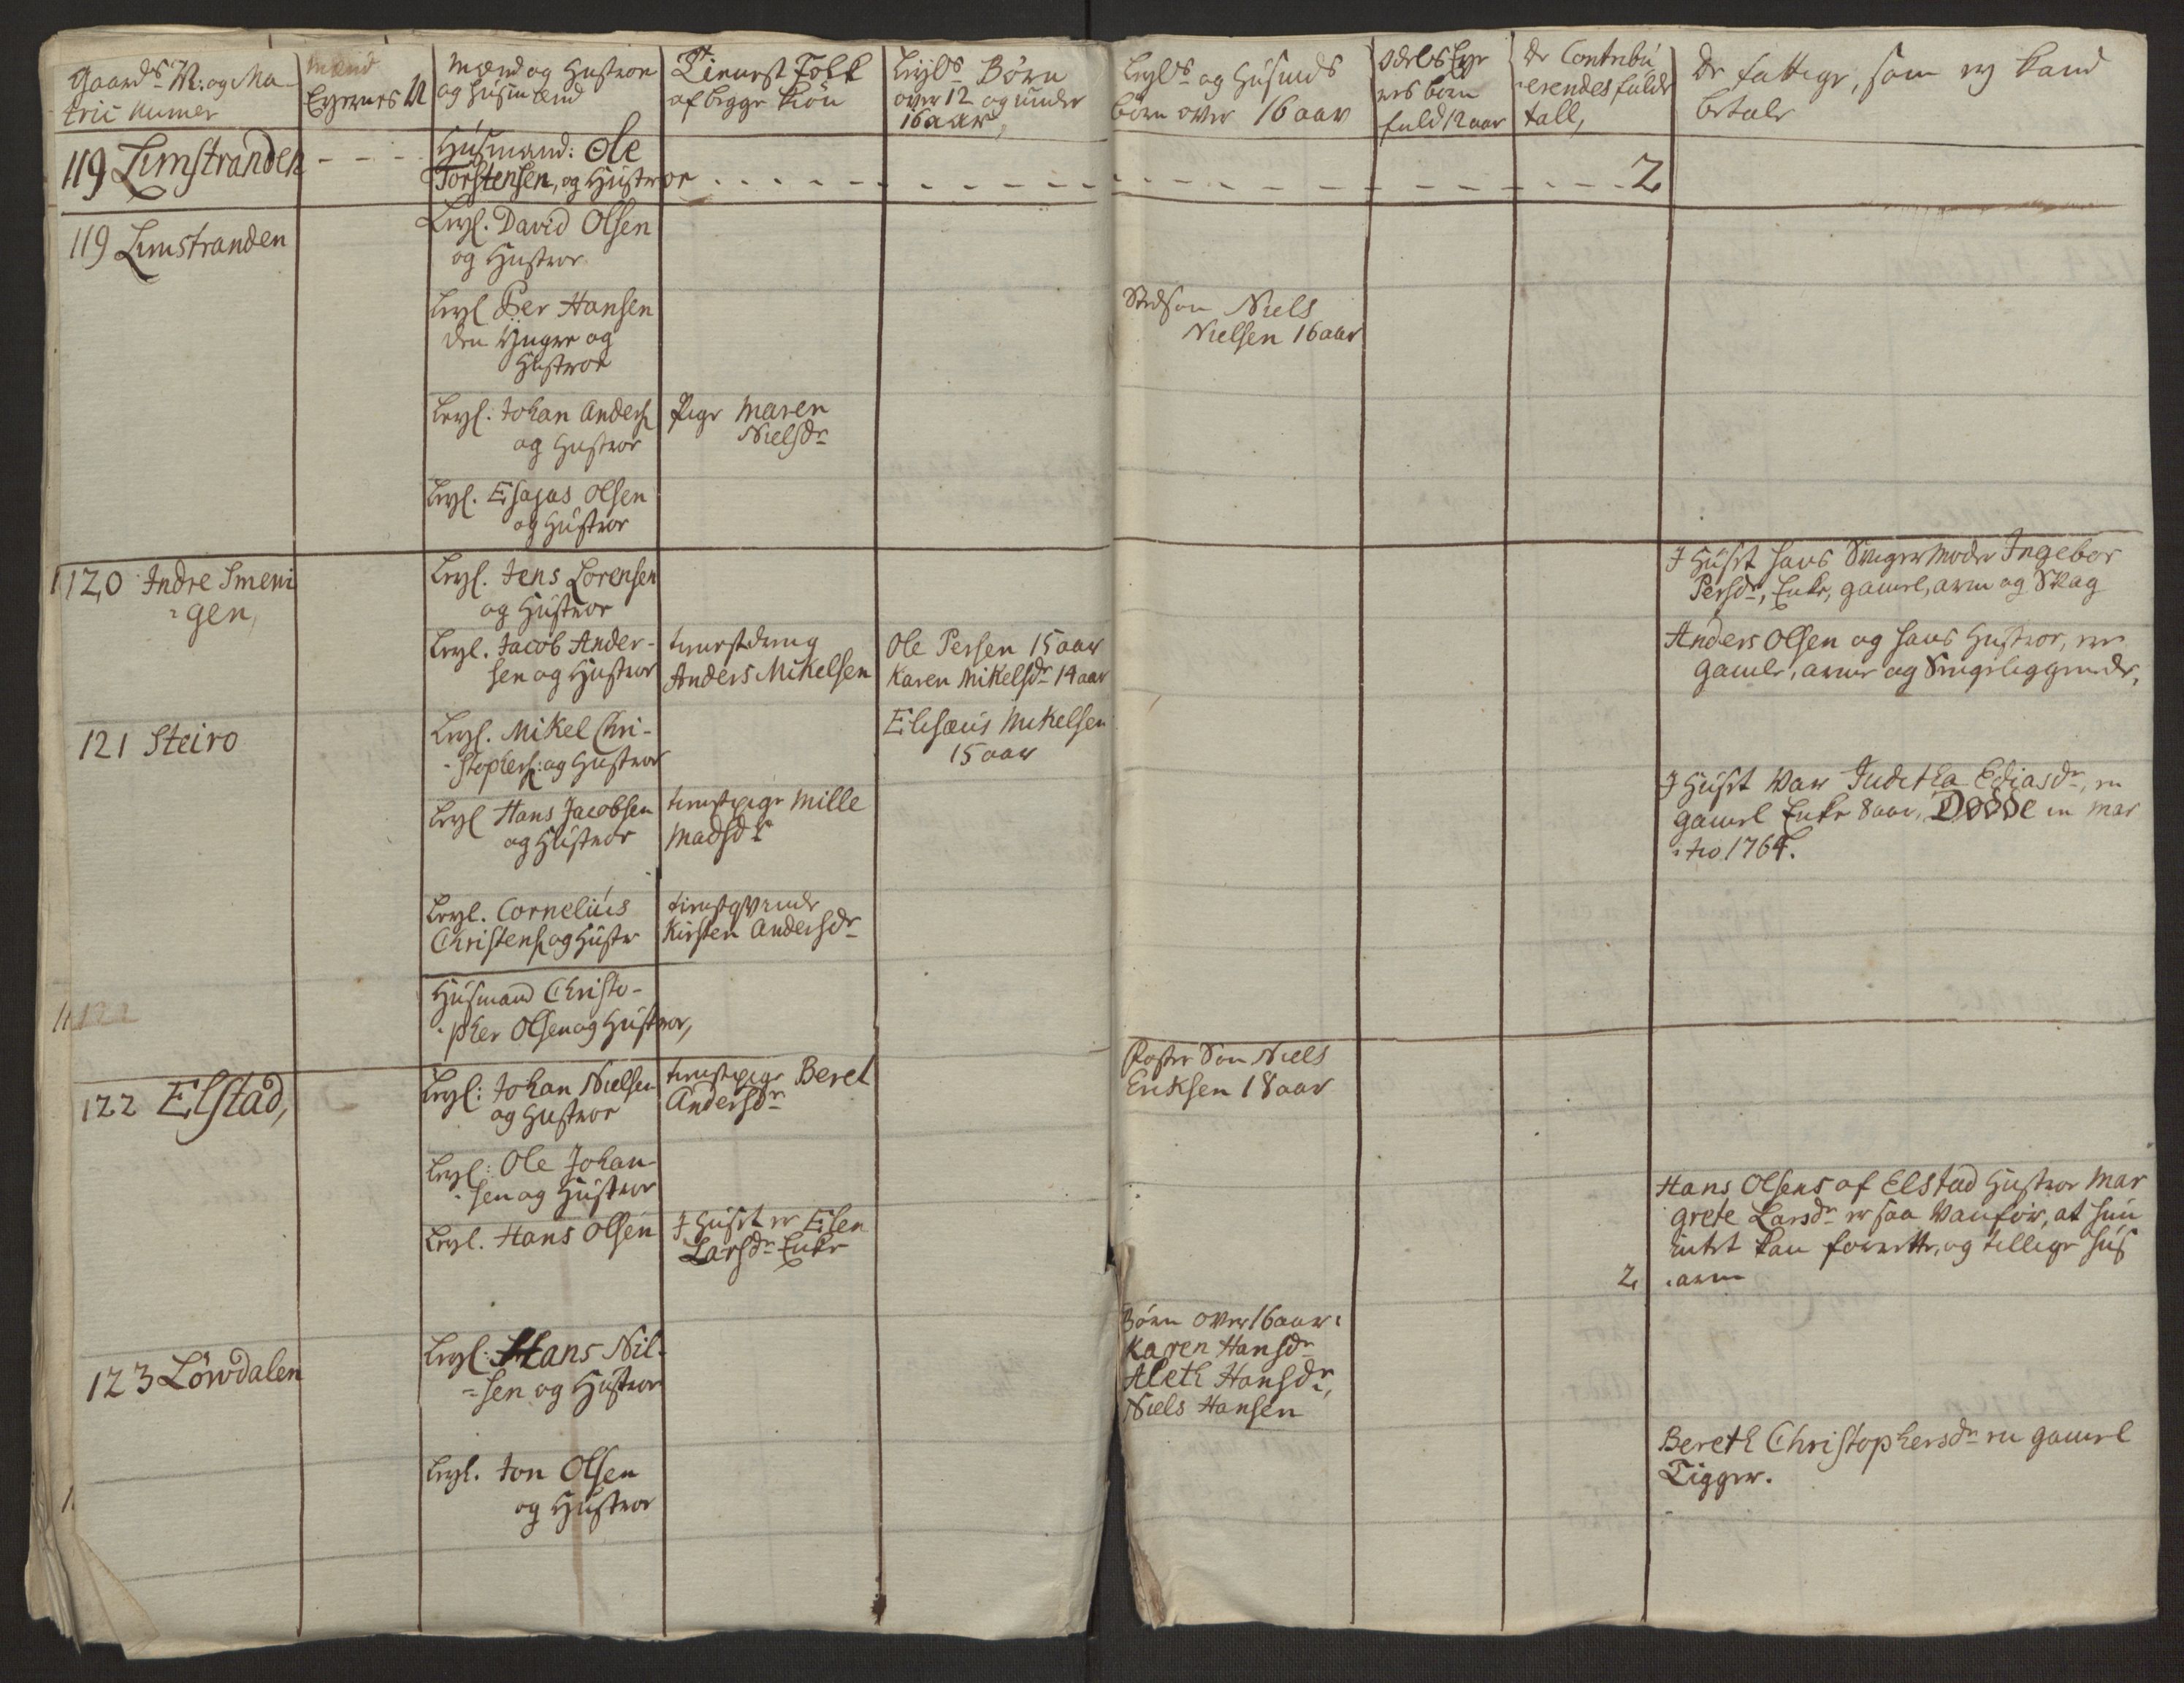 Gaards N: og Ma-
tric Numer
Mænd
Eyernes N
Mænd og Hustroe
og Husmænd
Tienest Folk
af begge kiön
Leyls Börn
over 12 og under
16 aar,
Leyls og Husmds
börn over 16 aar
Odels Eye
res börn
fuld 12 aar
De Contribu
-erendes fulde
tall,
De fattige, som ey kand
betale
119 Limstranden
Husmand: Ole
Torstensen, og Hustroe
2
119 Limstranden
Leyl. David Olsen
og Hustroe
Leyl Per Hansen
den Yngre og
Hustroe
Stedsön Niels
Nielsen 16 aar
Leyl: Johan Anders
og Hustroe
Pige Maren
Nielsdr
Leyl. Esajas Olsen
og Hustroe
120 Indre Smeni
-gen,
Leyl. Jens Lorensen
og Hustroe
I Huset hans Svigermoder Ingebor
Persdr, Enke, gamel, arm og Svag
Leyl. Jacob Ander-
sen og Hustroe
tienestdreng
Anders Mikelsen
Ole Persen 15 aar
Karen Mikelsdr 14 aar
Anders Olsen og hans Hustroe, ere
gamle, arme og Sengeliggende,
121 Steiro
Leyl. Mikel Chri-
-stophers: og Hustroe
Elisæus Mikelsen
15 aar
Leyl Hans Jacobsen
og Hustroe
tienstpige Mille
Madsdr
I Huset var Juditha Ediasdr, en
gamel Enke 8 aar, Döde in Mar
-tio 1764.
Leyl. Cornelius
Christens og Hustr
tienstqvinde
Kirsten Andersdr
122
Husmand Christo-
-pher Olsen og Hustroe,
122 Elstad,
Leyl: Johan Nielsen
og Hustroe
tienstpige Beret
Andersdr
Foster Sön Niels
Eriksen 18 aar
Leyl: Ole Johan-
-sen og Hustroe
Leyl. Hans Olsen
I Huset er Elen
Larsdr Enke
Hans Olsens af Elstad Hustroe Mar
grete Larsdr er saa Vanför, at hun
intet kan forrette, og tillige hus
-arm
2
123 Löwdalen
Leyl: Hans Nil-
=sen og Hustroe
Börn over 16 aar:
Karen Hansdr
Aleth Hansdr,
Niels Hansen
Leyl. Jon Olsen
og Hustroe
Bereth Christophersdr en gamel
Tigger.